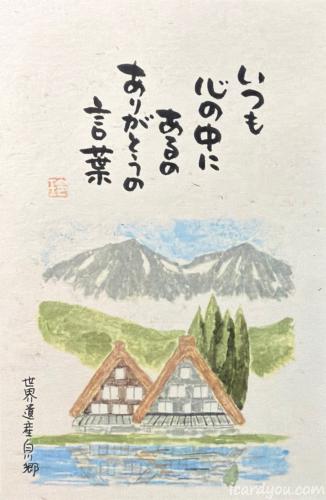 いつも
心の中に
あるの
ありがとうの
言葉
世界遺産白川郷
icardyou.com